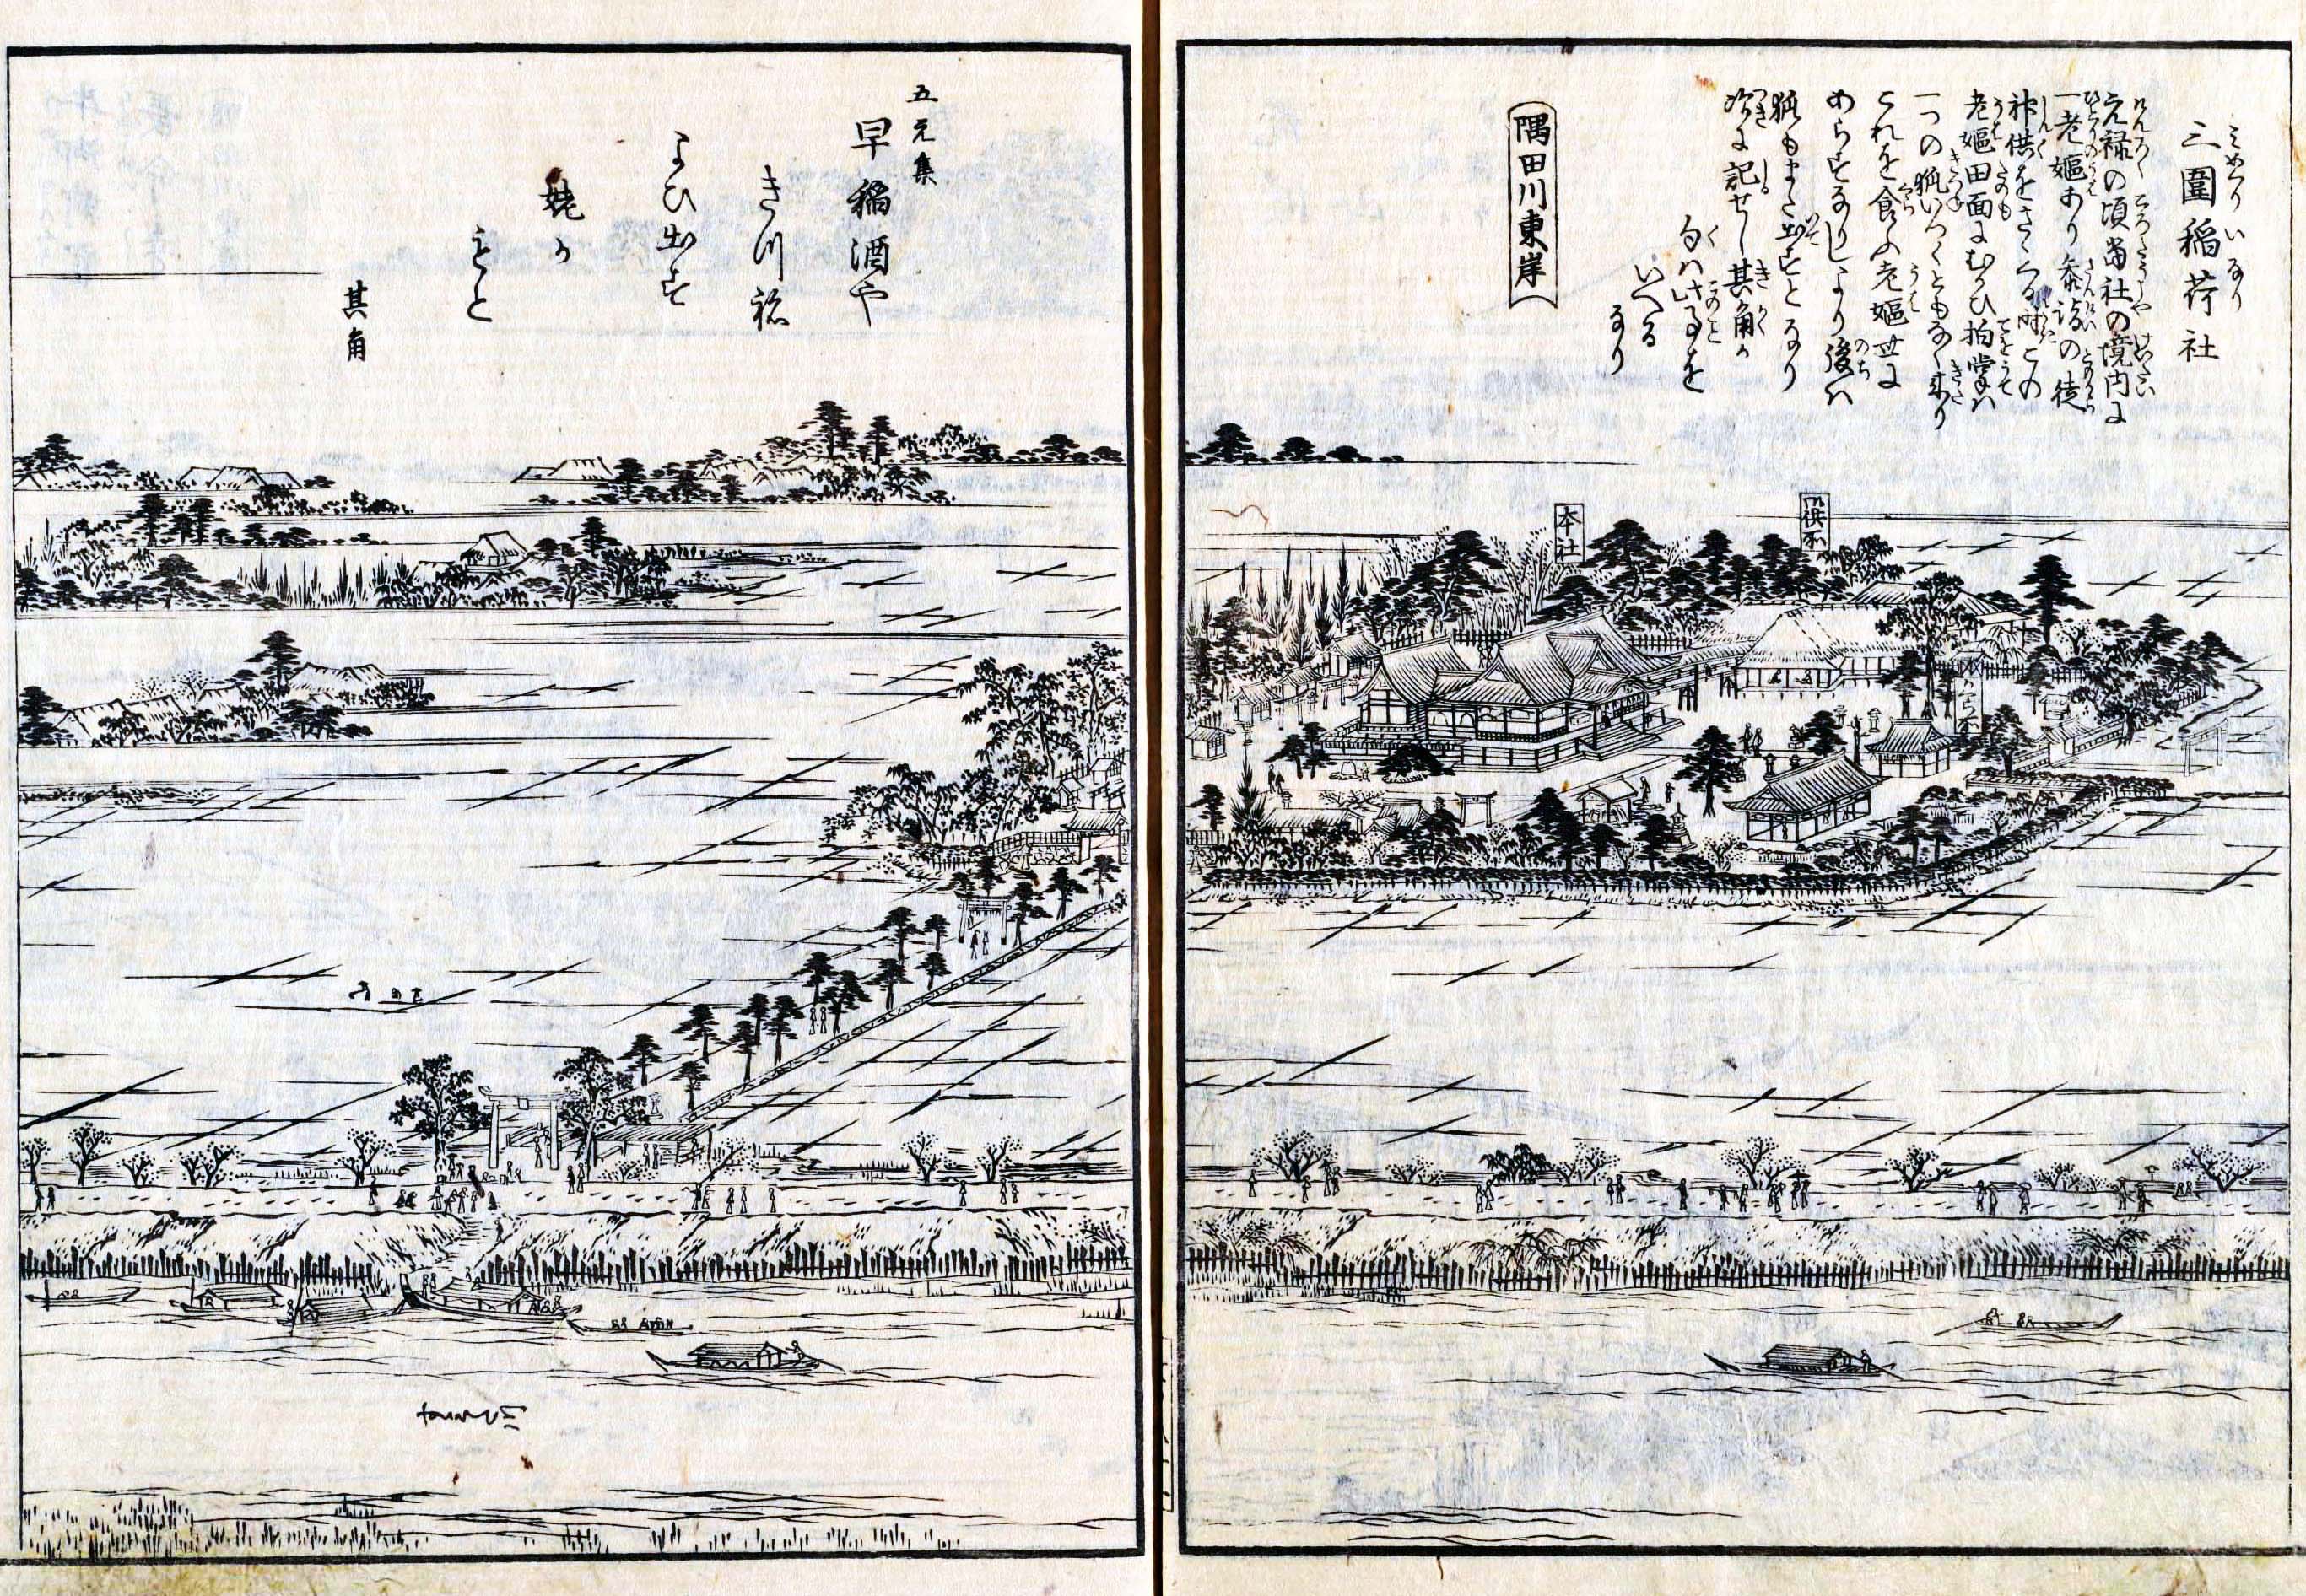 三圍稲荷社
みめぐりいなり
元禄の頃当社の境内に
一老嫗あり参詣の徒
神供をさゝくる時この
老嫗田面にむかひ拍掌ハ
一つの狐いつくともなく来り
これを食ふ老嫗世に
あらすなりしより後ハ
狐もまた出すとなり
次に記せし其角か
句ハ此事を
いへる
なり
隅田川東岸
本社
供所
五元集
早稲酒や
きつ祢
よひ出す
姥か
もと
其角